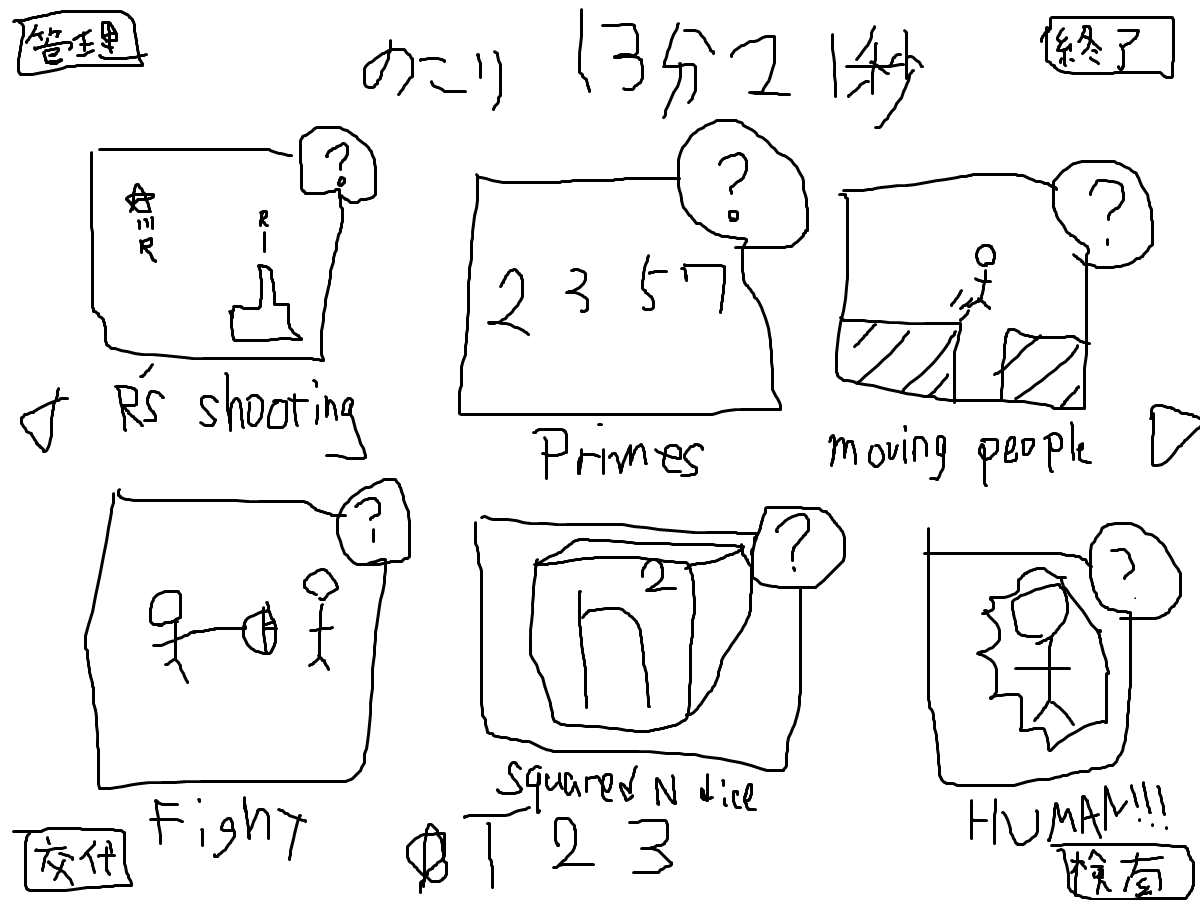 管理
のこり 13分21秒
終了
?
R
R
?
2 3 5 7
?
R's shooting
Primes
moving people
?
?
n2
?
Fighy
squared N dice
HUMAN!!!
交代
0 1 2 3